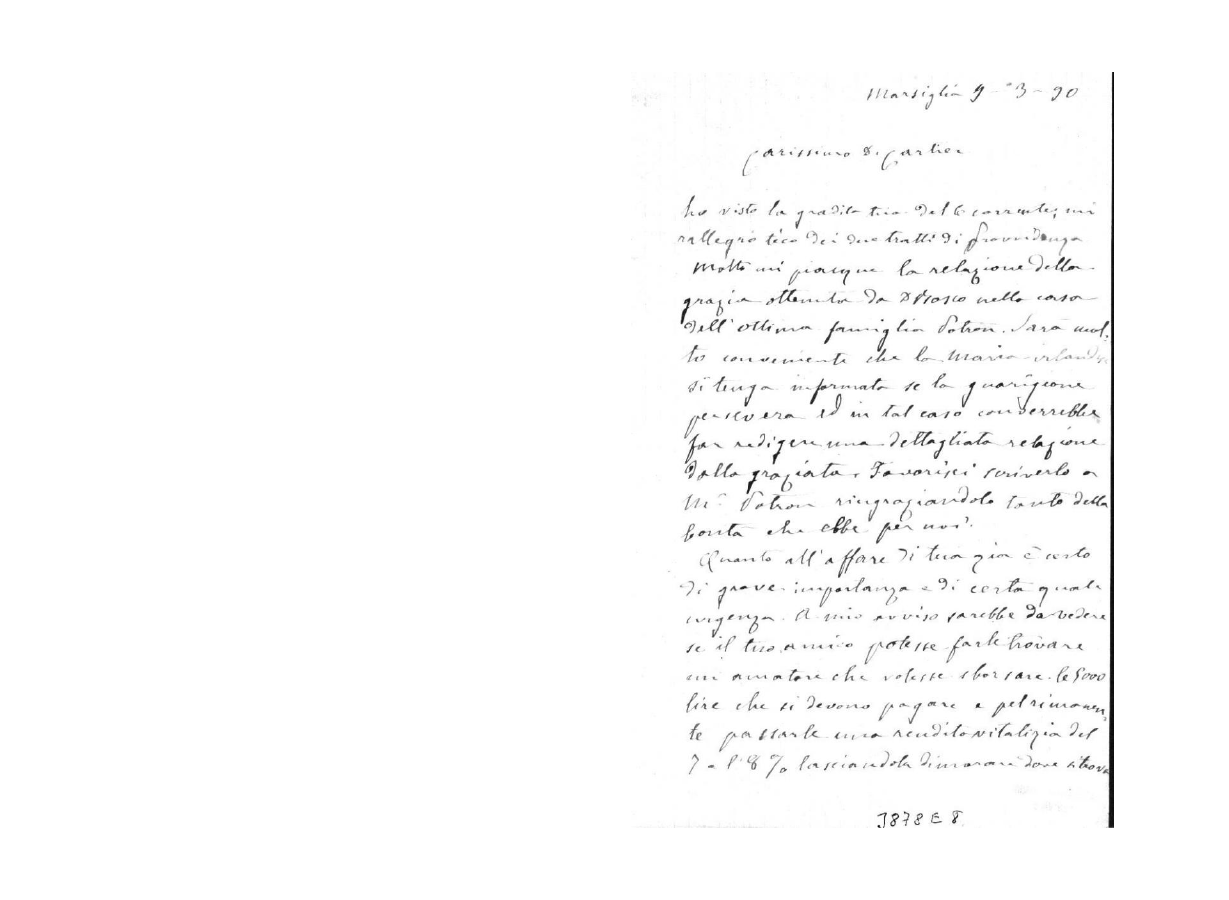 Marsiglia 9-3-90
Carissimo D. Cartier
ho visto la gradita tua del 6 corrente; mi
rallegro teco dei due tratti di Provvidenza
Molto mi piacque la relazione della
grazia ottenuta da D Bosco nella casa
dell'ottima famiglia Potron. Sarà mol-
to conveniente che la Maria
si tenga informata se la guarigione
persevera ed in tal caso converrebbe
far redigere una dettagliata relazione
dalla graziata. Favorisci scriverlo a
Mr Potron ringraziandolo tanto della
bontà che ebbe per noi.
Quanto all'affare di tua zia è certo
di grave importanza e di certa quale
urgenza. A mio avviso sarebbe da vedere
se il tuo amico potesse farle trovare
un amatore che volesse sborsare le 5000
lire che si devono pagare e pel rimanen-
te passarle una rendita vitalizia del
7 a l' 8 % lasciandola dimorare dove si trova
3878 E 8